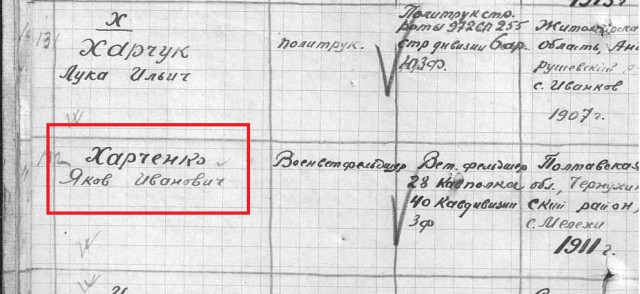 Х
131
Харчук
Лука Ильич
политрук.
Политрук стр.
роты 972 СП 255
стр дивизии
ЮЗФ.
область,
с. Иванков
1907 г.
Харченко
Яков Иванович
Военветфельдшер
Вет. фельдшер
28 Кавполка
40 Кавдивизии
ЗФ
Полтавская
обл., Чернухин
ский район,
с. Мелехи
1911 г.